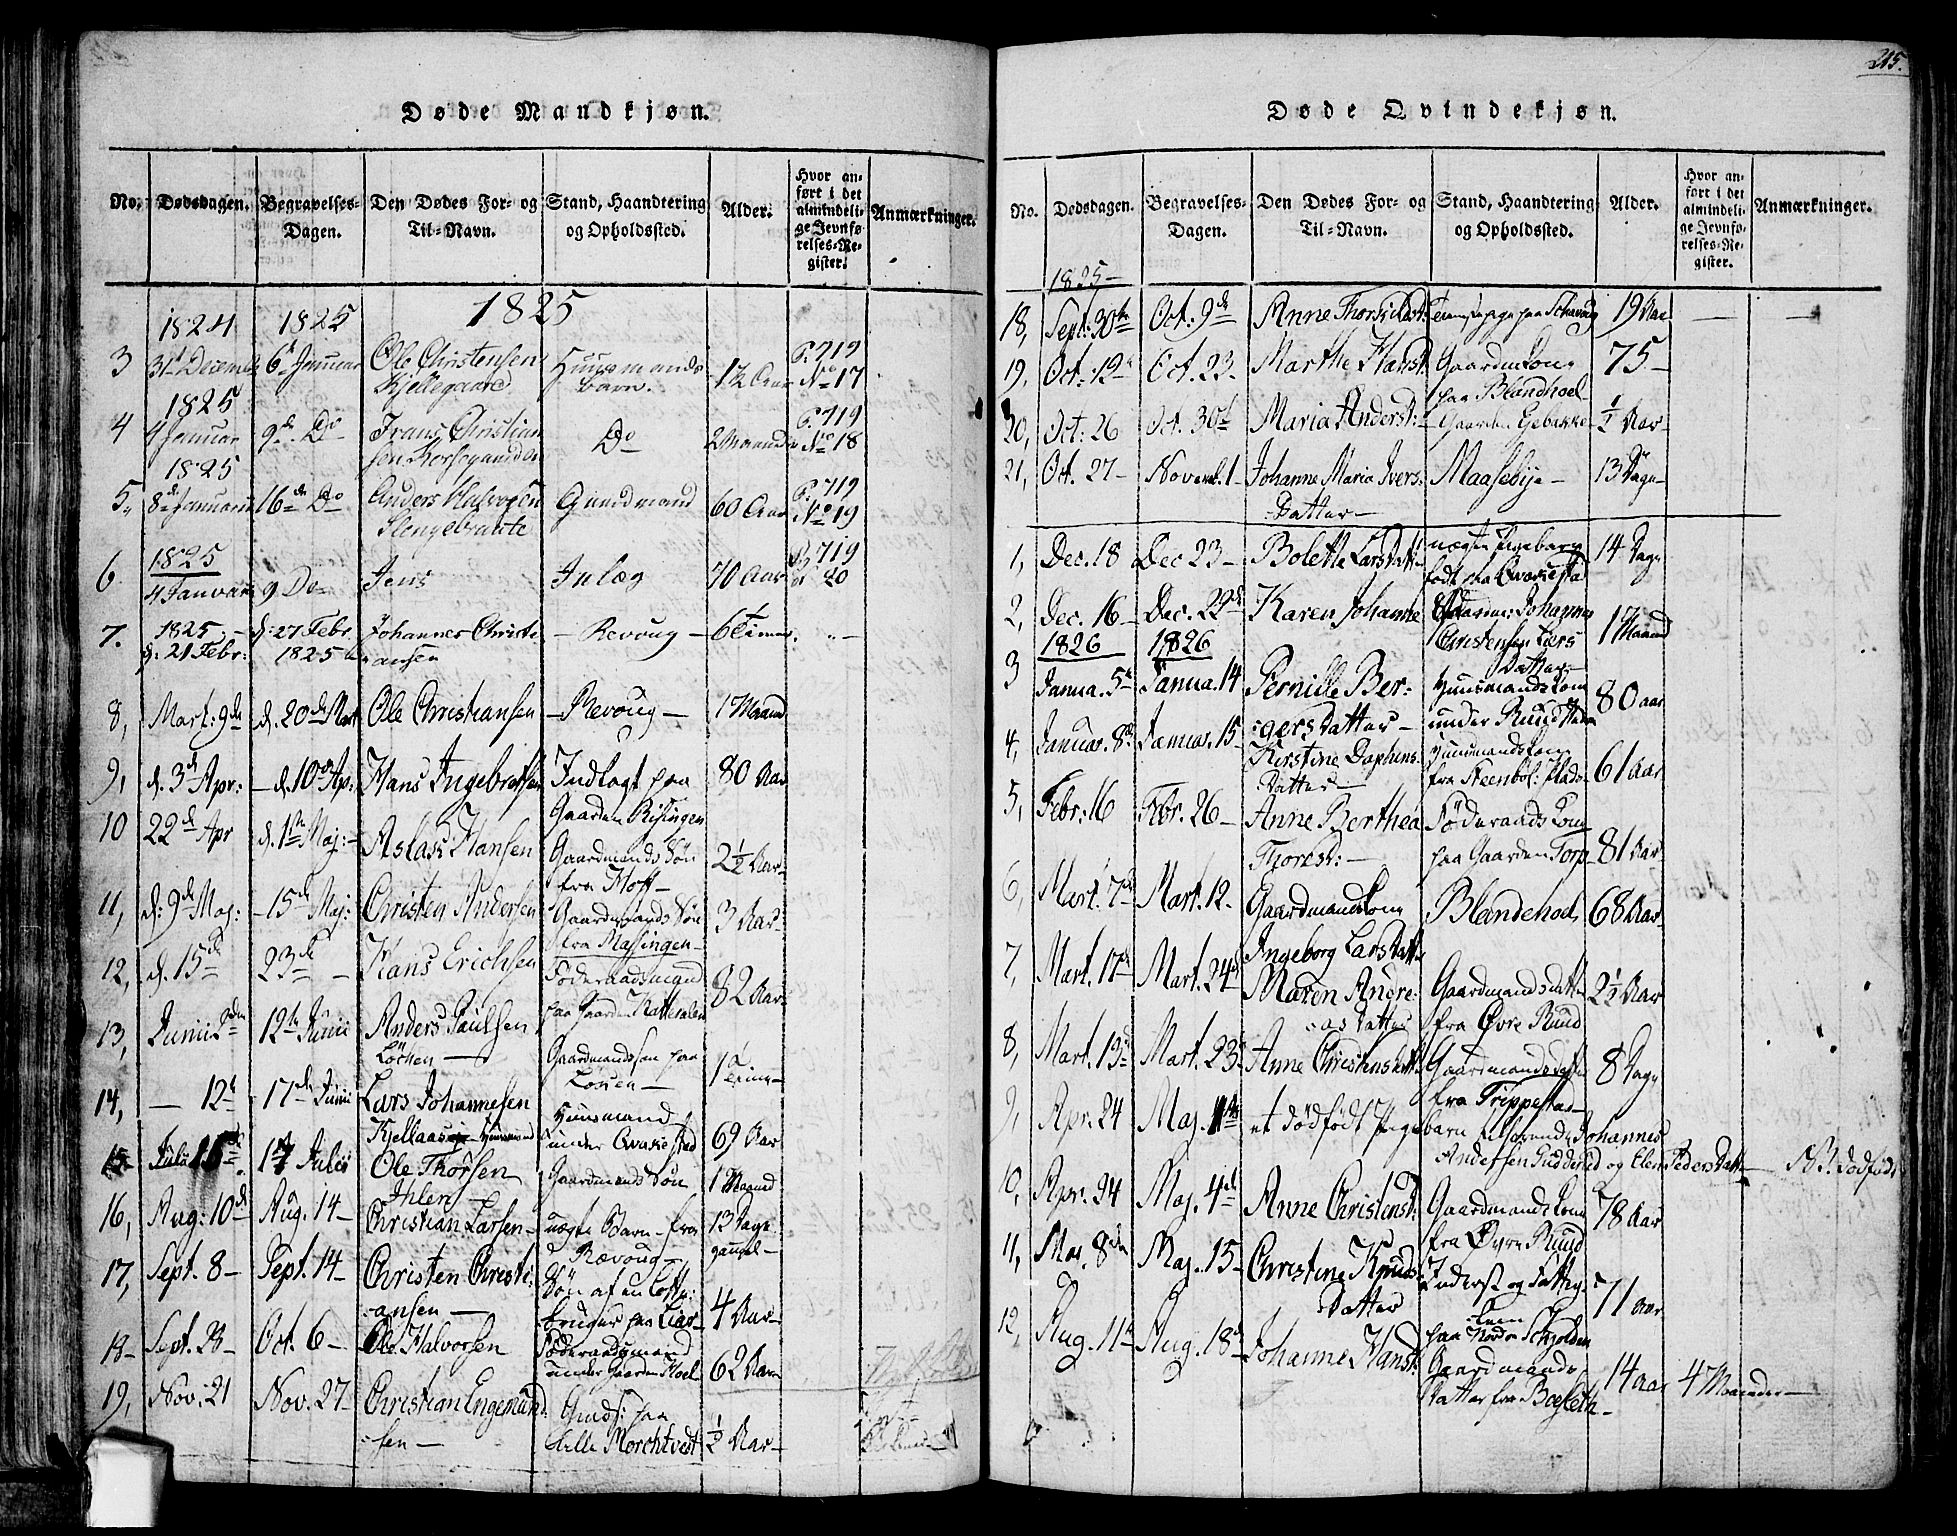 215.
Døde Mandkjøn.
No. Dødsdagen. Begravelses-Dagen. Den Dødes For- og Til-Navn. Stand, Haandtering og Opholdssted. Alder. Hvor anført i det almindelige Jevnførelses-Register. Anmærkninger.
1824 1825 1825
3 31 Decembr 6 Januar Ole Christensen Huusmands 1½ Aar P. 719
Kjellegaard barn. No 17
1825
4 4 Januar 9de Do Frans Christian Do 2 Maaneder P. 719
sen No 18
1825
5. 8de Januar 16de Do Anders Halvorsen Gaardmand 60 Aar P. 719
Slengebraate No 19
1825
6. 4 Januar 9 Do Jens Inlæg 70 Aar P. 719
20
7. 1825 d: 27 Febr. Johannes Christi- Revoug 6 Timer
d: 21 Febr: 1825 ansen
8, Mart: 9de d. 20de Mart Ole Christiansen Revoug 1 Maaned
9, d. 3d Apr: d. 10de Ap: Hans Ingebretsen Indlagt paa 80 Aar
Gaarden Risingen
10 22de Apr d. 1ste Maj: Aslak Hansen Gaardmands Søn 2½ Aar
fra Hoff
11, d: 9de Maj: 15de Maj: Christen Andersen Gaardmands Søn 3 Aar
fra Massingen
12, d. 15de 23de Hans Erichsen Föderaadsmand 82 Aar
paa Gaarden
13, Junii 12te Junii Anders Paulsen Gaardmandssøn paa 1 Time
Löchen
14, 12te 17de Junii Lars Johannesen Huusmand 69 Aar
Kjellaas under Qvakestad
15 Julii 15de 17 Julii Ole Thorsen Gaardmands Søn 1 Maaned
Ihlen
16, Aug: 10de Aug. 14 Christian Larsen uægte Barn fra 13 Dage
Rævoug gammel
17, Sept. 8 Sept. 14 Christen Christi- Søn af en 4 Aar
ansen bruger paa Lier
18 Sept. 28 Oct. 6 Ole Halvorsen Föderaadsmand 62 Aar
under Gaarden Hoel
19, Nov. 21 Nov. 27 Christian Engemund- Gmds: paa ½ Aar
sen lille Morchtvedt
Døde Qvindekjøn.
No. Dødsdagen. Begravelses-Dagen. Den Dødes For- og Til-Navn. Stand, Haandtering og Opholdssted. Alder. Hvor anført i det almindelige Jevnførelses-Register. Anmærkninger.
1825
18, Sept: 30te Oct: 9de Anne 19 Aar
19, Oct: 12 Oct. 23 Marthe Hansd Gaardmdkone 75
paa Blandhoel
20, Oct: 26 Oct. 30te Maria Andersd: Gaarden Egebakke ½ Aar
21, Oct. 27 Novemb. 1 Johanne Maria Ivers- Maasebye 13 Dage
Datter
1, Dec. 18 Dec 23 Bolette Larsdatter uægte Pigebarn 14 Dage
født paa Qvakestad
2, Dec. 16 Dec. 29de Karen Johanne Johannes 1 Maaned
Christensen Lærs
Datter
1826 1826
3 Janua. 5te Janua. 14 Pernille Ber- Huusmandskone 80 aar
gers datter under Ruud
4, Januar. 8de Januar. 15 Kirstine Huusmandskone 61 Aar
Datter fra Steenböl
5, Febr. 16 Febr. 26 Anne Berthea Föderaads Kone 81 Aar
Thoresd: paa Gaarden Torp
6, Mart. 7de Mart. 12 Gaardmandskone Blandehoel 68 Aar
Ingeborg Larsdatter
7, Mart. 17de Mart. 24de Maren Andre- Gaardmandsdatter 2½ Aar
as datter fra Øvre Ruud
8, Mart. 19de Mart. 23de Anne Christensdatt Gaardmandsdatter 8 Dage
fra Trippestad
9, Apr. 24 Maj. 1ste et dödfödt Pigebarn Johannes
Andersen Gudderud og Elen Peders Datter NB. dödfödt
10, Apr. 24 Maj. 4de Anne Christensd: Gaardmands Kone 78 Aar
fra Øvre Ruud
11, Maj. 8de Maj. 15 Christine Knuds- Inderst og Fattig- 71 Aar
datter lem
paa Nordre Schjolden
12, Aug. 11te Aug. 18de Johanne Hansd: Gaardmands- 14 aar 4 Maaneder
datter fra Basleth